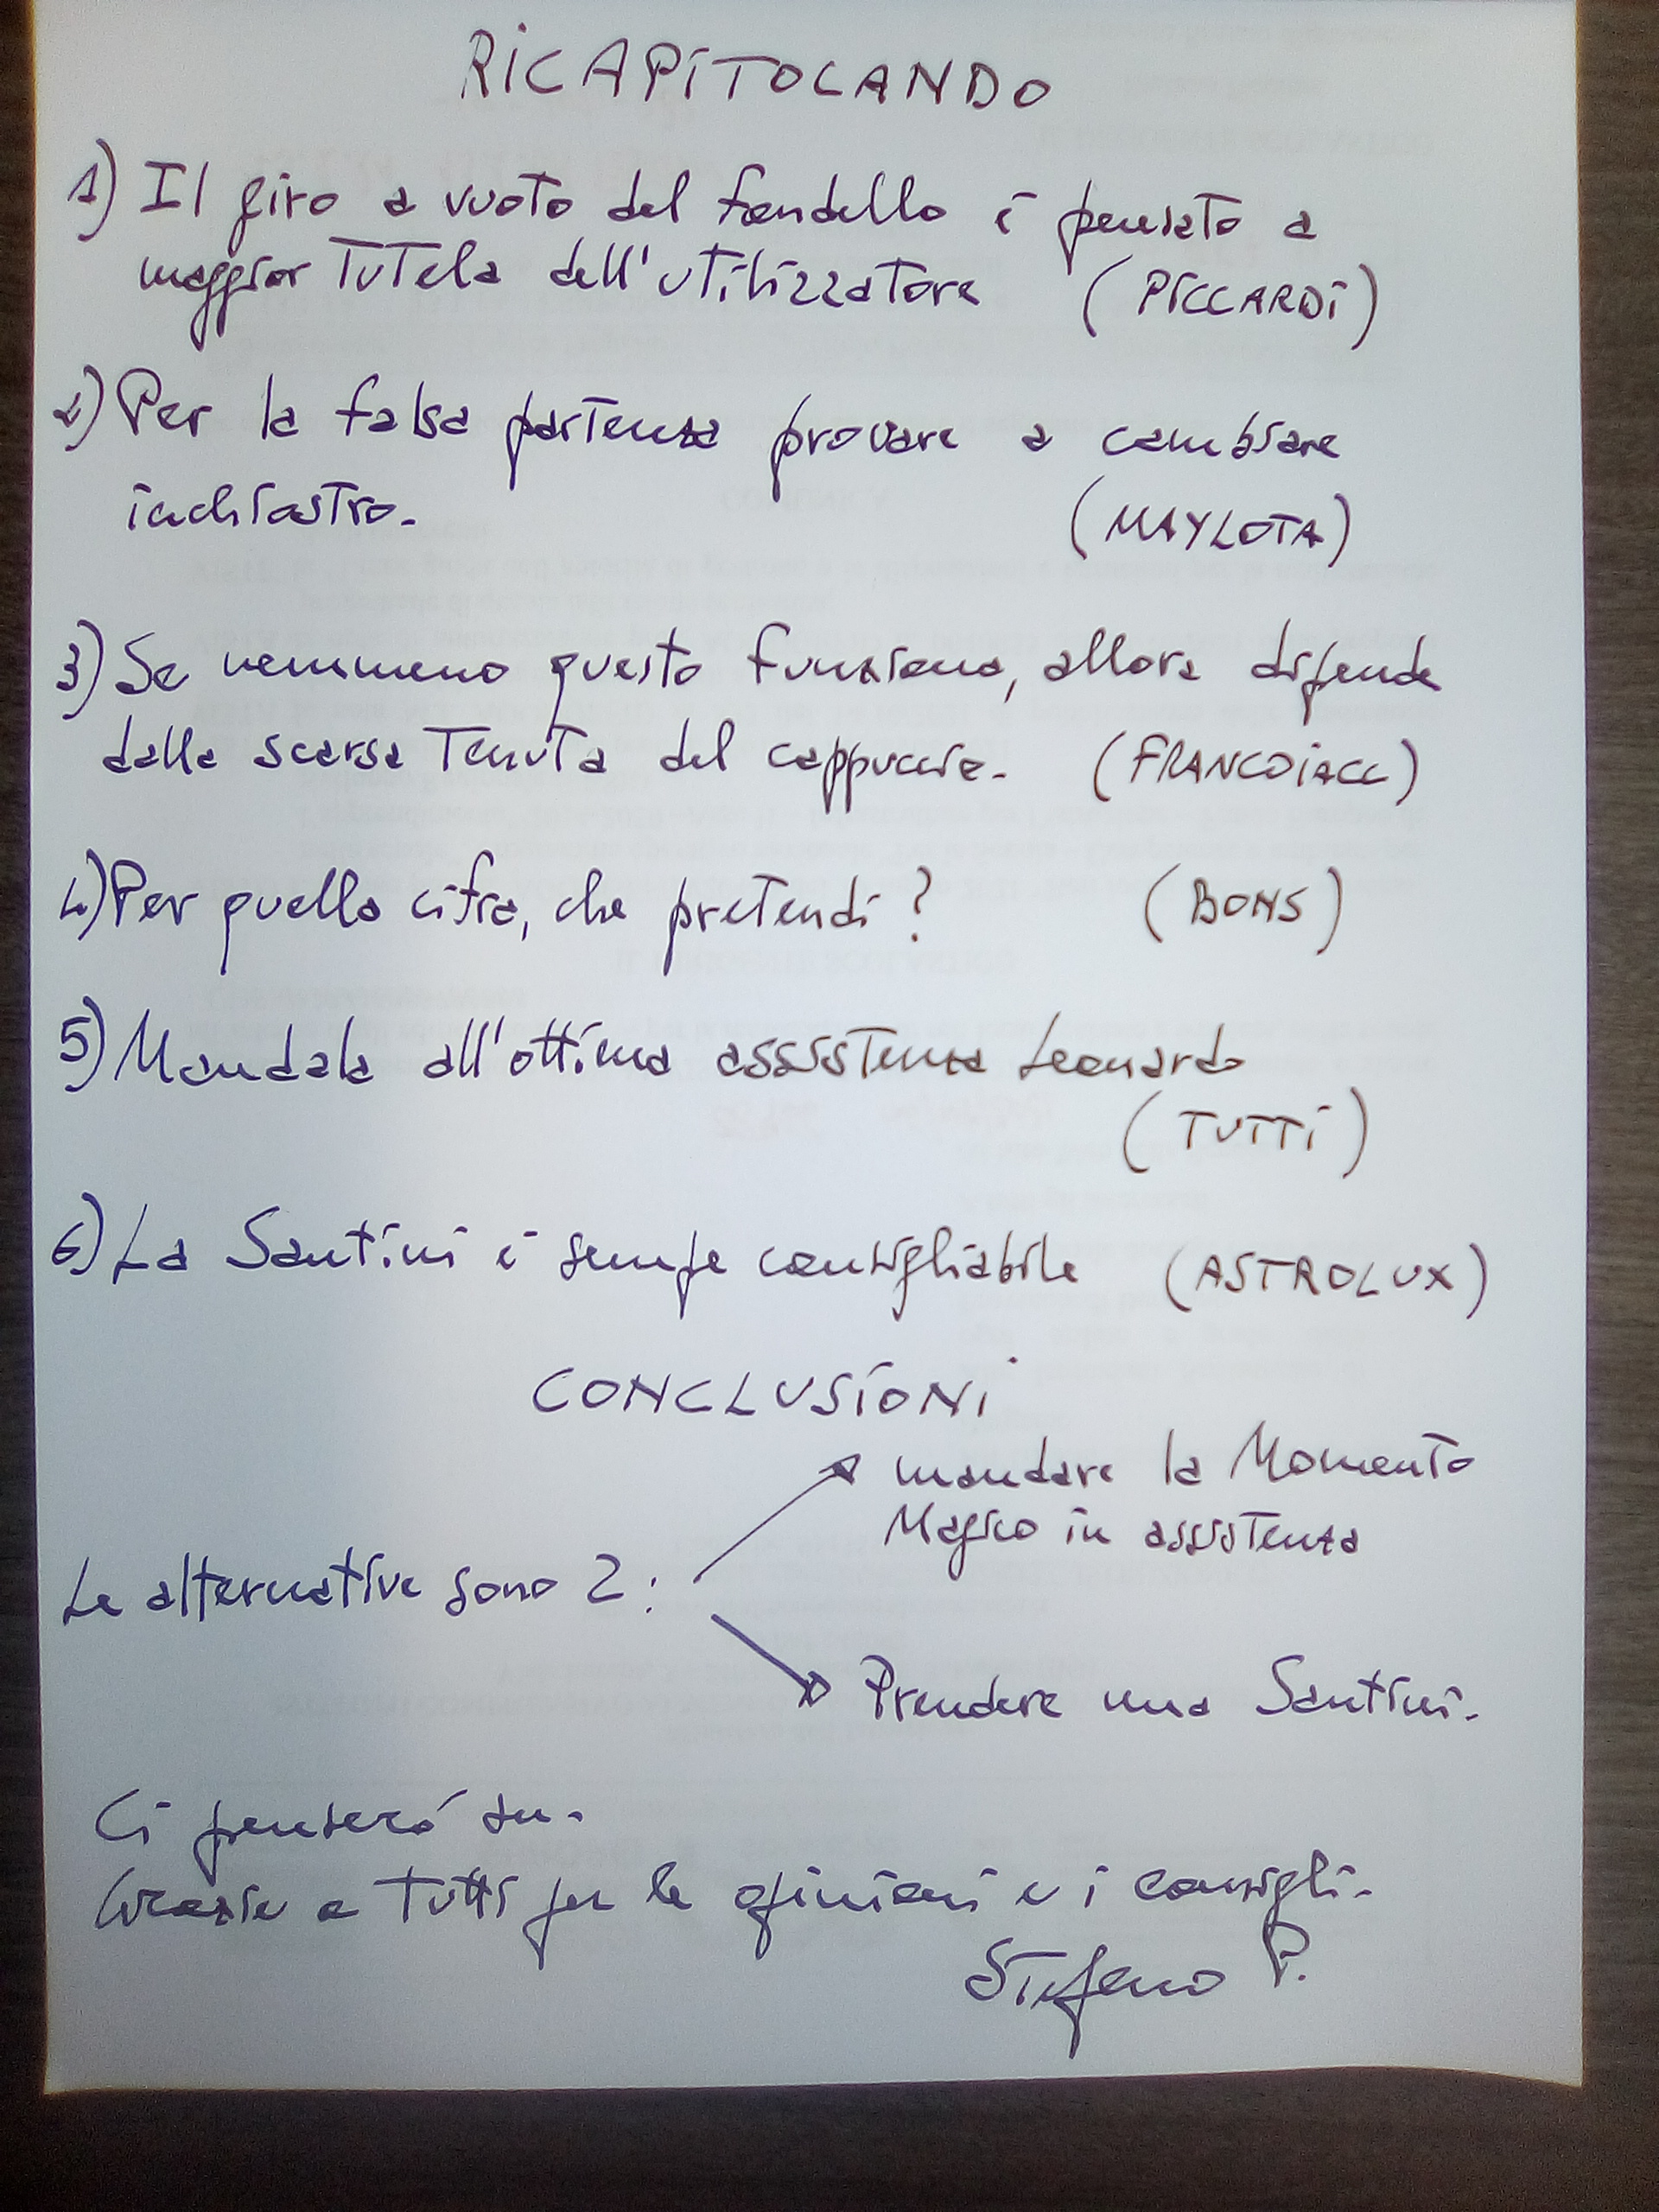 RICAPITOLANDO
1) Il giro a vuoto del fondello è pensato a
maggior tutela dell'utilizzatore (PICCARDI)
2) Per la falsa partenza provare a cambiare
inchiostro. (MAYLOTA)
3) Se nemmeno questo funziona, allora dipende
dalla scarsa tenuta del cappuccio. (FRANCOIACC)
4) Per quella cifra, che pretendi? (BONS)
5) Mandala all'ottima assistenza Leonardo
(TUTTI)
6) La Santini è sempre consigliabile (ASTROLUX)
CONCLUSIONI
mandare la Momento
Magico in assistenza
Le alternative sono 2:
Prendere una Santini.
Ci penserò su.
Grazie a tutti per le opinioni e i consigli.
Stefano P.